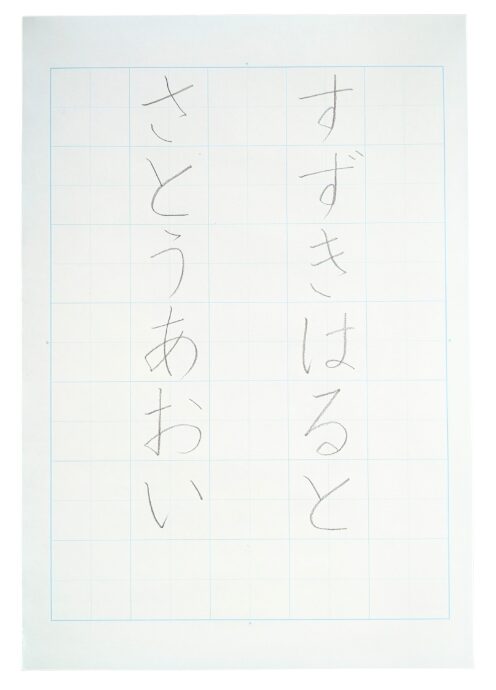 すずきはると
さとうあおい